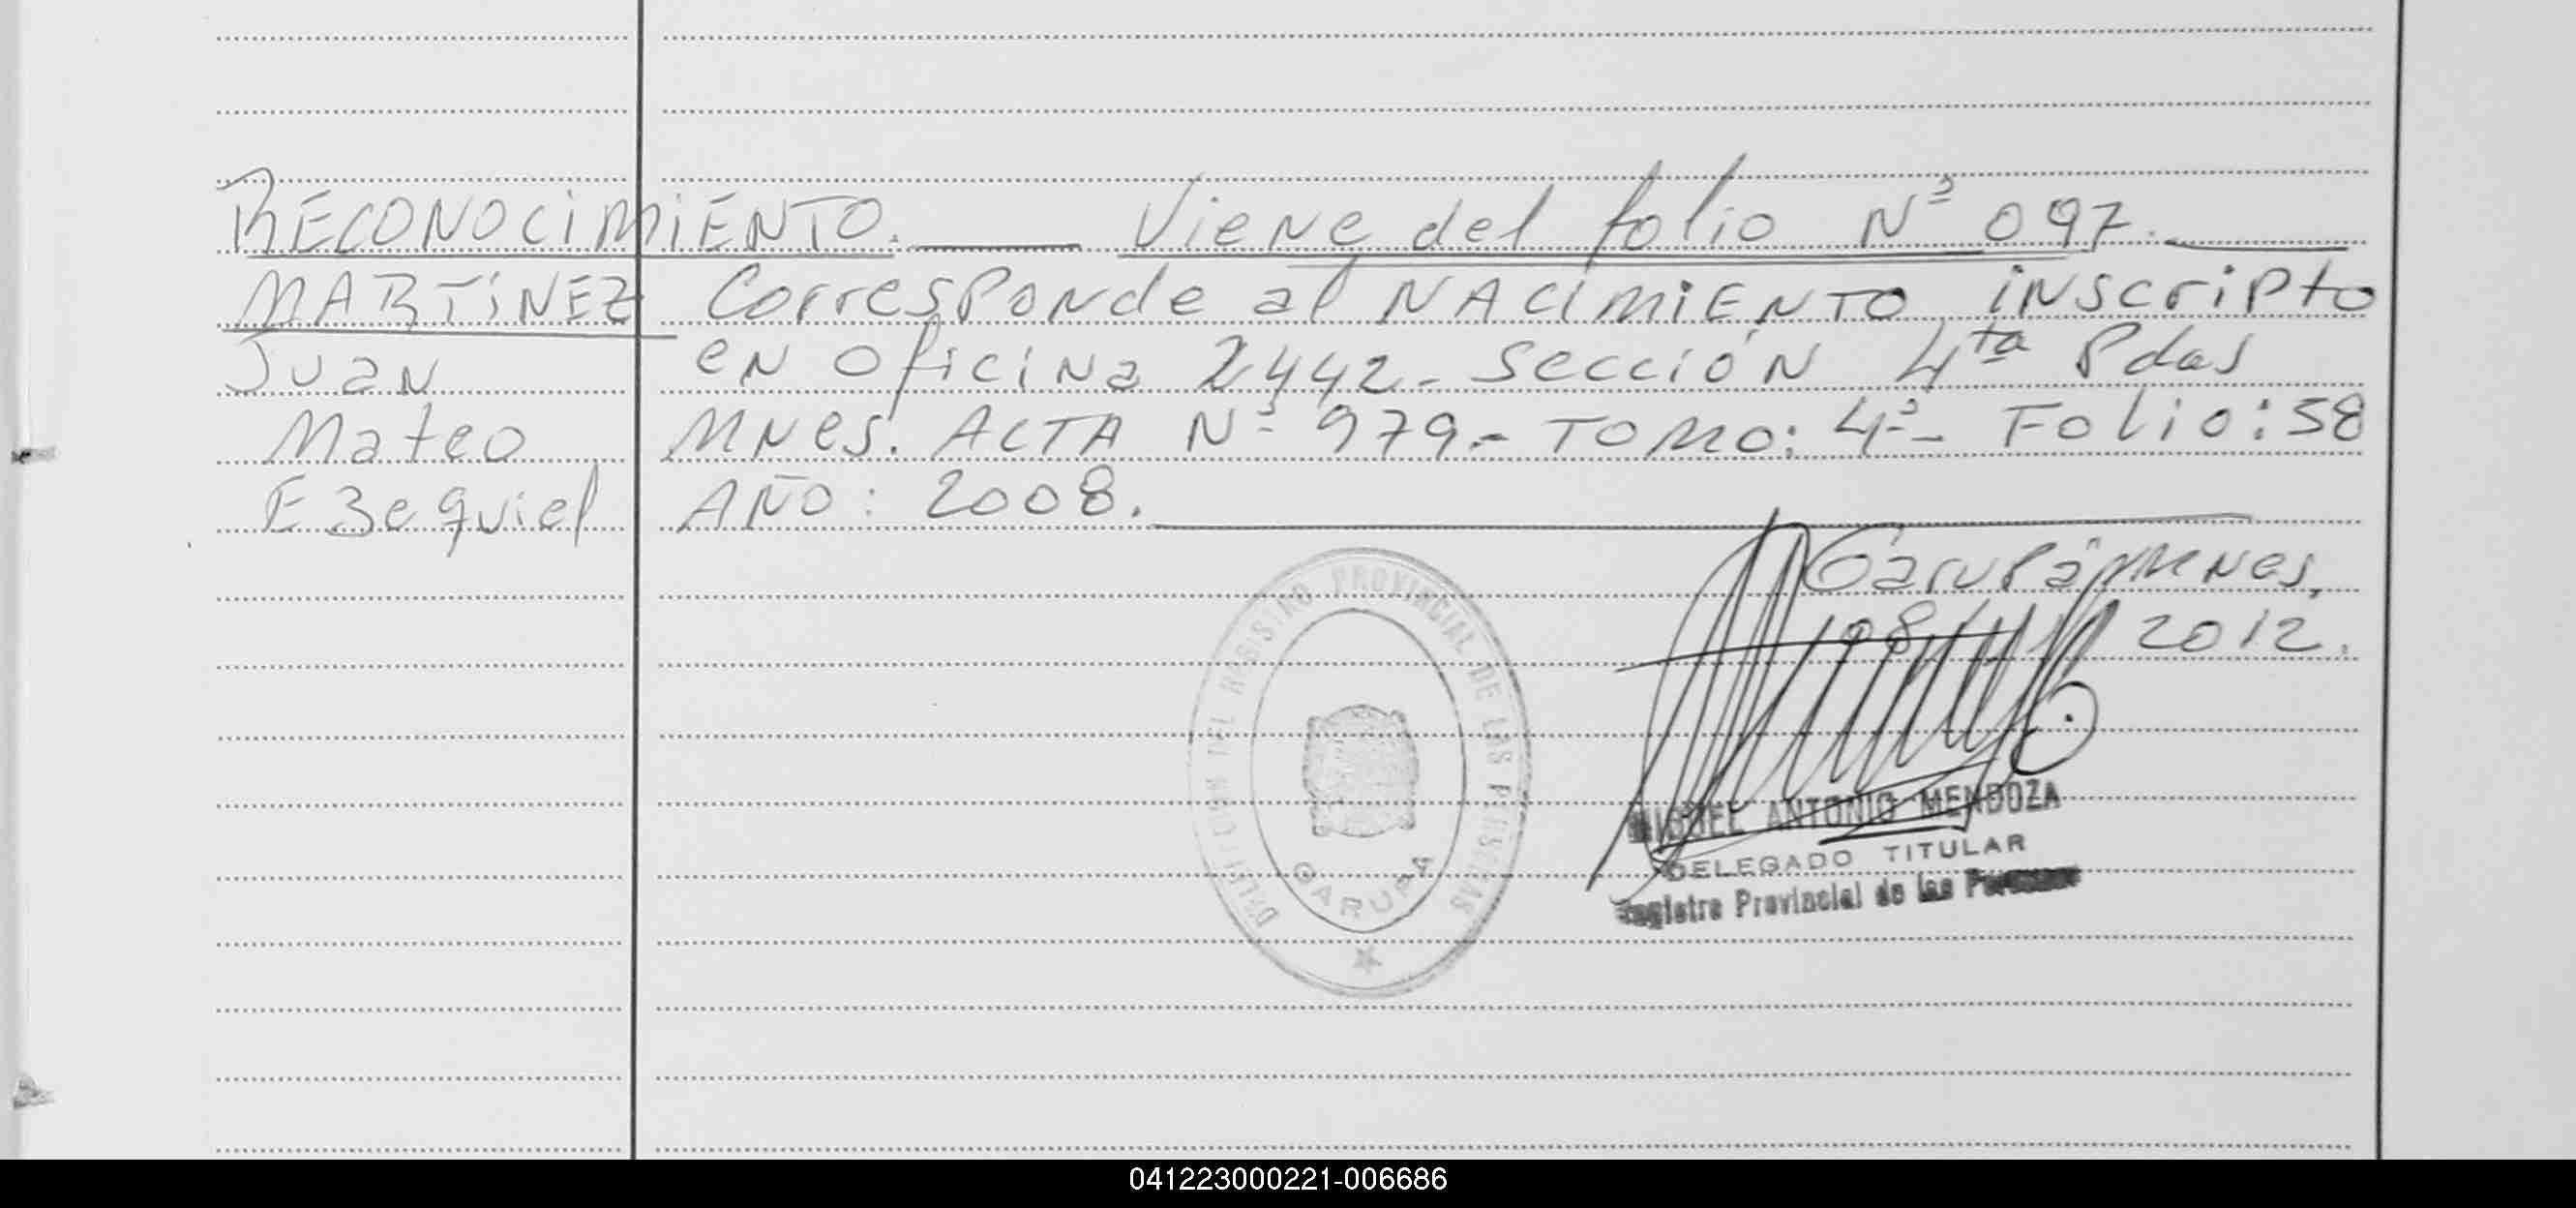 RECONOCIMIENTO. Viene del folio Nº 097.
MARTINEZ Corresponde al NACIMIENTO inscripto
Juan en Oficina 2442 - Sección 4ta Pdas
Mateo Mnes. ACTA Nº 979.- TOMO: 4º- Folio: 58
Ezequiel AÑO: 2008.
Garupá, Mnes,
2012.
DIRECCION DEL REGISTRO PROVINCIAL DE LAS PERSONAS
GARUPA
MIGUEL ANTONIO MENDOZA
DELEGADO TITULAR
Registro Provincial de las Personas
041223000221-006686